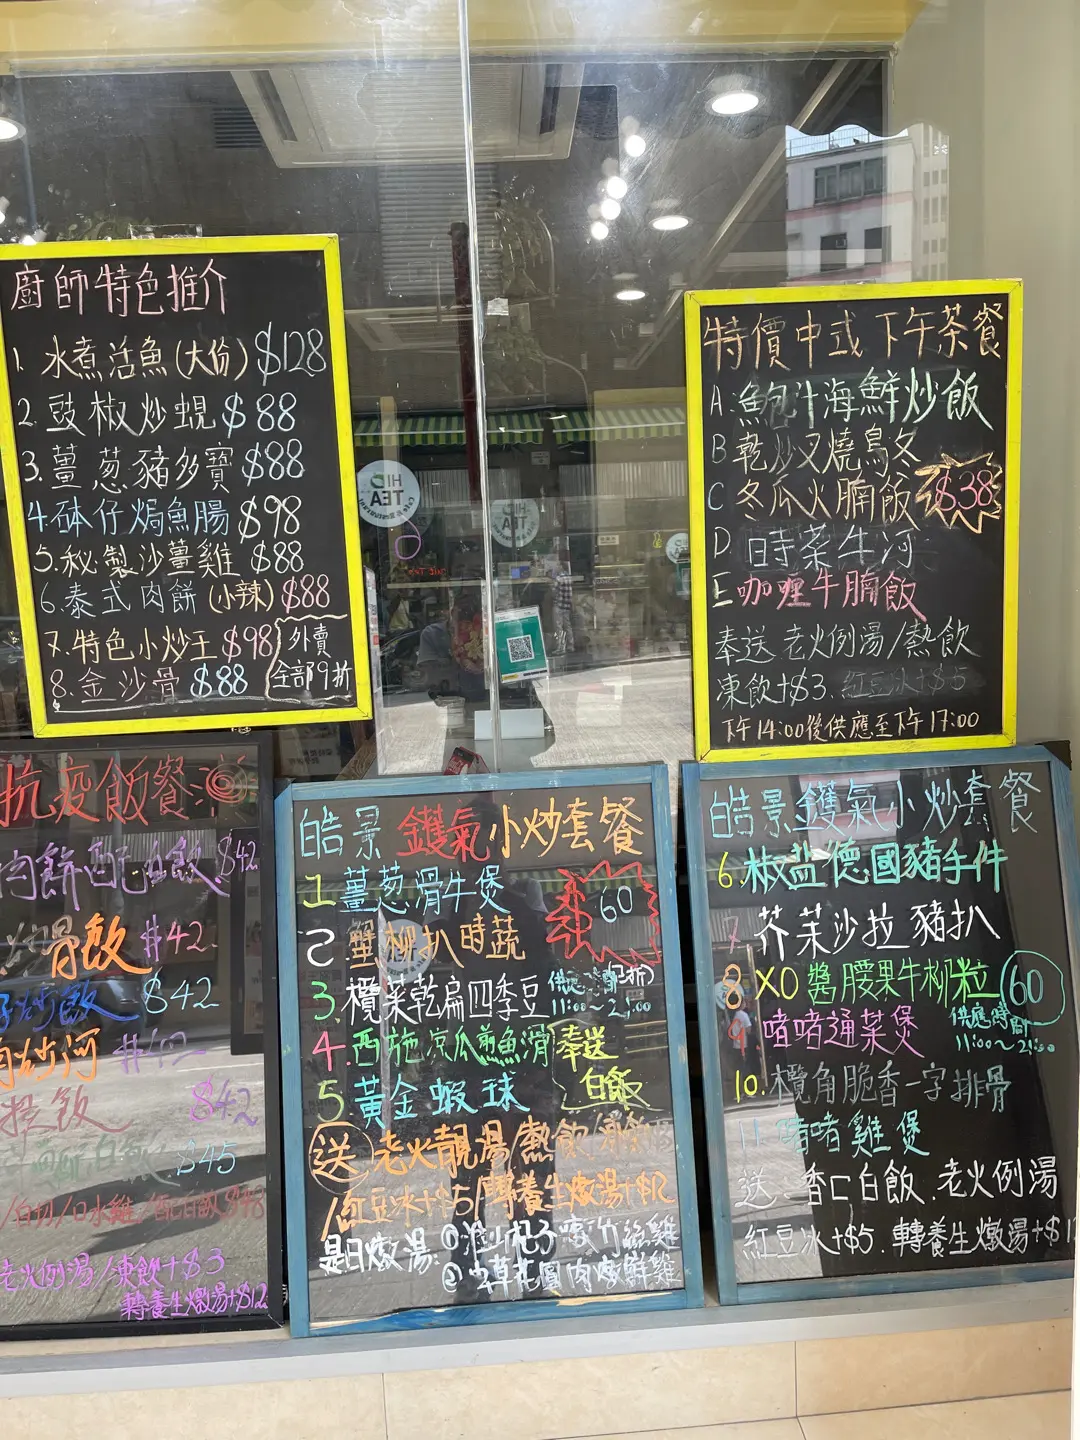 廚師特色推介
1. 水煮活魚(大份) $128
2. 豉椒炒蜆 $88
3. 薑葱豬多寶 $88
4. 砵仔焗魚腸 $98
5. 秘製沙薑雞 $88
6. 泰式肉餅(小辣) $88
7. 特色小炒王 $98
8. 金沙骨 $88
外賣
全部9折
HI
TEA
特價中式下午茶餐
A. 鮑汁海鮮炒飯
B 乾炒叉燒烏冬
C 冬瓜火腩飯
$38
D. 時菜牛河
E 咖喱牛腩飯
奉送老火例湯/熱飲
凍飲+$3. 紅豆冰+$5
下午14:00後供應至下午17:00
抗疫飯餐
肉餅配白飯 $42
骨飯 $42
炒飯 $42
炒河
飯 $42
$45
/口水雞/配白飯 $48
老火例湯/凍飲+$3
轉養生燉湯+$12
皓景 鑊氣小炒套餐
1 薑葱滑牛煲
60
2 蟹柳扒時蔬
3. 欖菜乾扁四季豆
4. 西施凉瓜煎魚滑
奉送
白飯
5 黃金蝦球
送 老火靚湯/熱飲
/紅豆冰+$5/轉養生燉湯+$12
是日燉湯:
皓景鑊氣小炒套餐
6. 椒盐德國豬手件
7 芥茉沙拉豬扒
8 XO醬腰果牛柳粒
60
供應時間
11:00~21:00
9 啫啫通菜煲
10. 欖角脆香一字排骨
11. 啫啫雞煲
送: 香口白飯. 老火例湯
紅豆冰+$5. 轉養生燉湯+$1